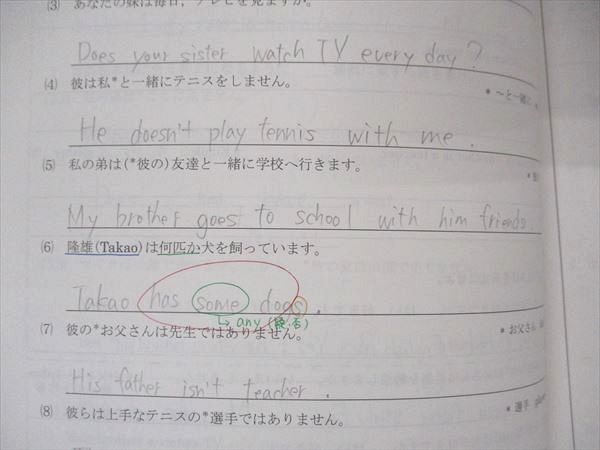 (3) あなたの妹は毎日, テレビを見ますか。
Does your sister watch TV every day?
(4) 彼は私*と一緒にテニスをしません。
* 〜と一緒に
He doesn't play tennis with me.
(5) 私の弟は(*彼の)友達と一緒に学校へ行きます。
My brother goes to school with him friends.
(6) 隆雄(Takao)は何匹か犬を飼っています。
Takao has some dogs.
↳ any (疑.否)
(7) 彼の*お父さんは先生ではありません。
* お父さん
His father isn't teacher.
(8) 彼らは上手なテニスの*選手ではありません。
* 選手